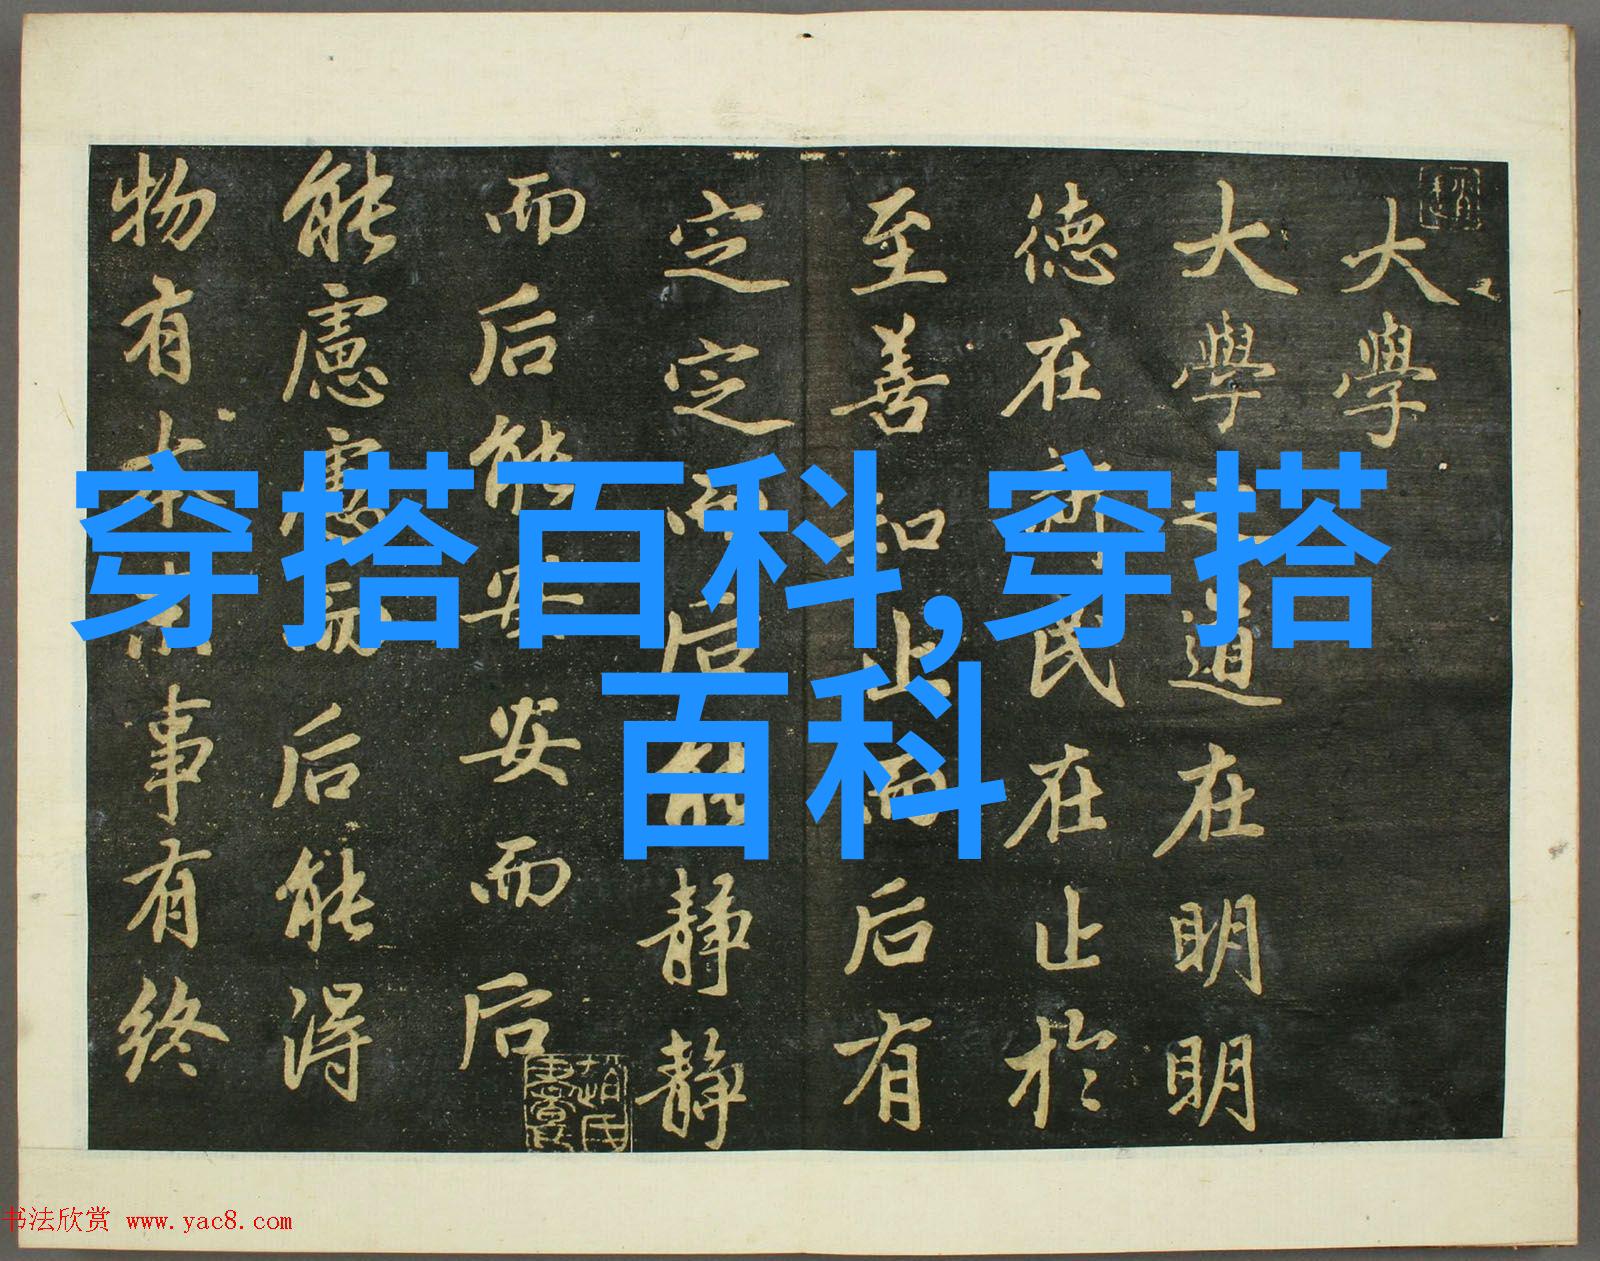 大學
大學之道在明明
德在新民在止於
至善知止而后有
定定而后能静静
而后能安安而后
能慮慮而后能得
物有本末事有終
穿搭百科,穿搭
百科
书法欣赏 www.yac8.com